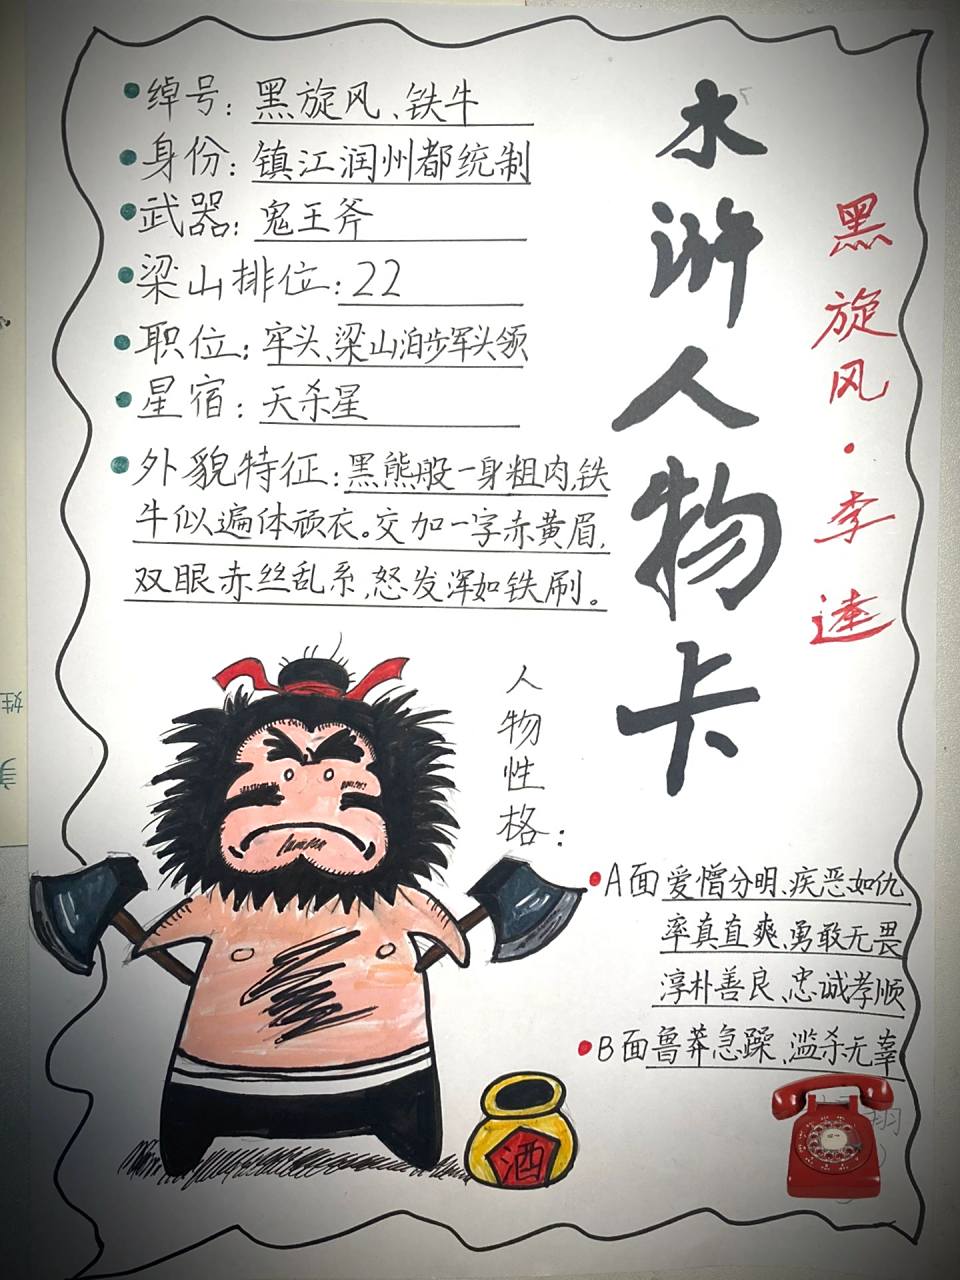 水浒人物卡
黑旋风·李逵
绰号：黑旋风、铁牛
身份：镇江润州都统制
武器：鬼王斧
梁山排位：22
职位：牢头、梁山泊步军头领
星宿：天杀星
外貌特征：黑熊般一身粗肉，铁
牛似遍体顽衣。交加一字赤黄眉，
双眼赤丝乱系，怒发浑如铁刷。
人物性格：
A面爱憎分明、疾恶如仇
率真直爽、勇敢无畏
淳朴善良、忠诚孝顺
B面鲁莽急躁、滥杀无辜
酒